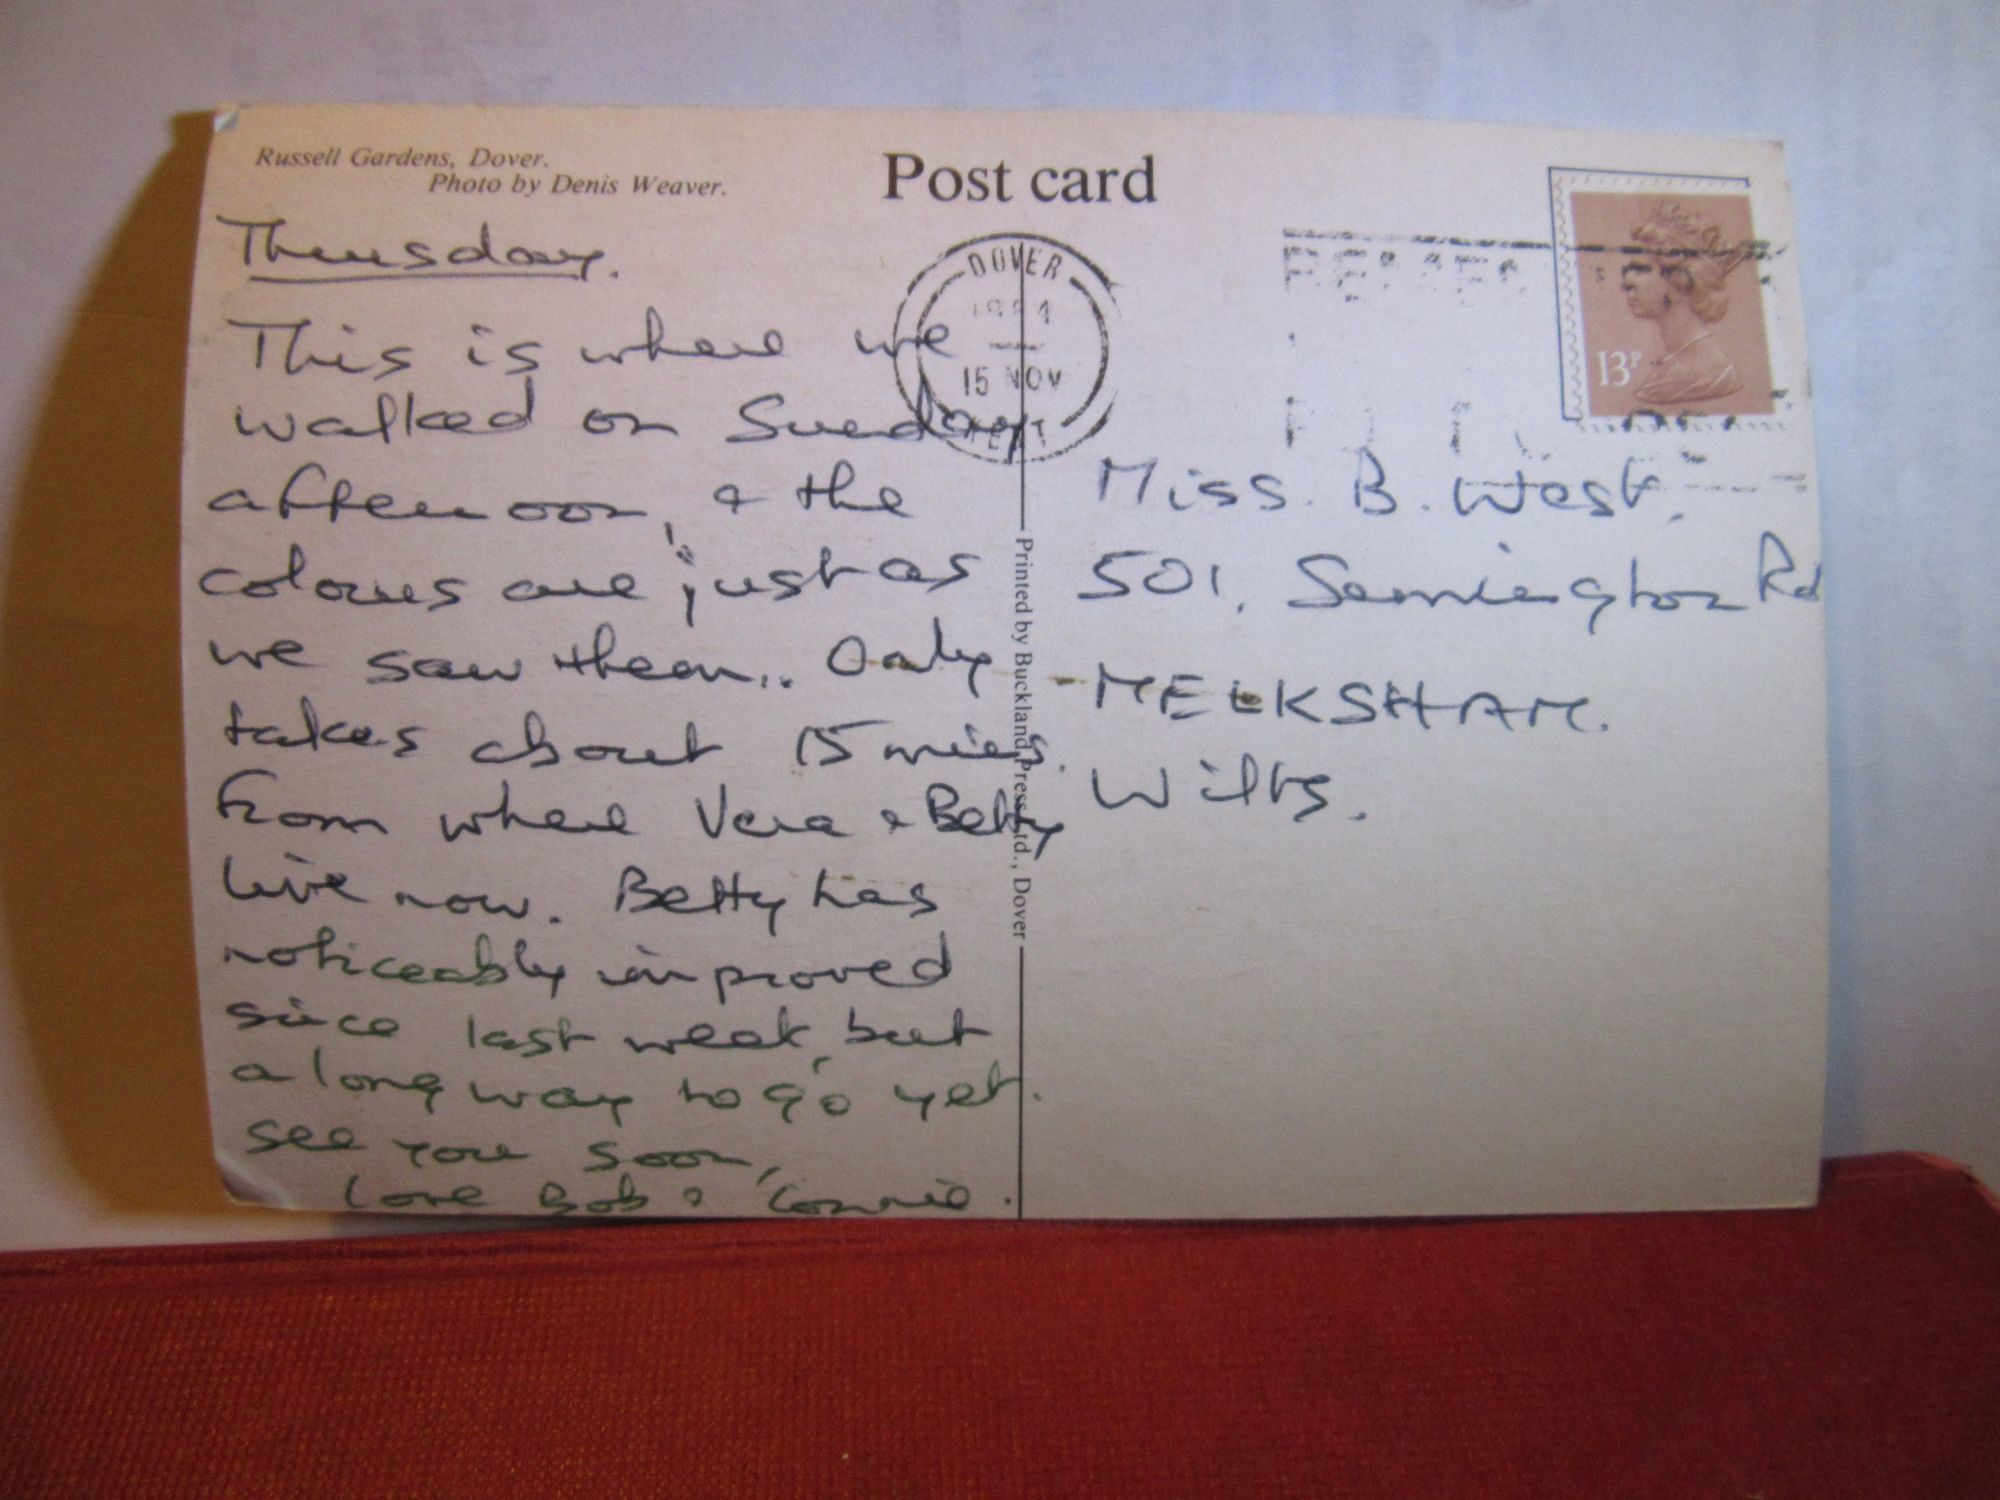 Russell Gardens, Dover.
Photo by Denis Weaver.
Post card
Thursday.
This is where we
walked on Sunday
afternoon, & the
colours are just as
we saw them.. Only
takes about 15 mins.
from where Vera & Betty
live now. Betty has
noticeably improved
since last week, but
a long way to go yet.
see you soon,
Love Bob & Connie.
DOVER
1984
15 NOV
KENT
13P
Miss. B. West.
501, Semington Rd
MELKSHAM.
Wilts.
Printed by Buckland Press Ltd., Dover